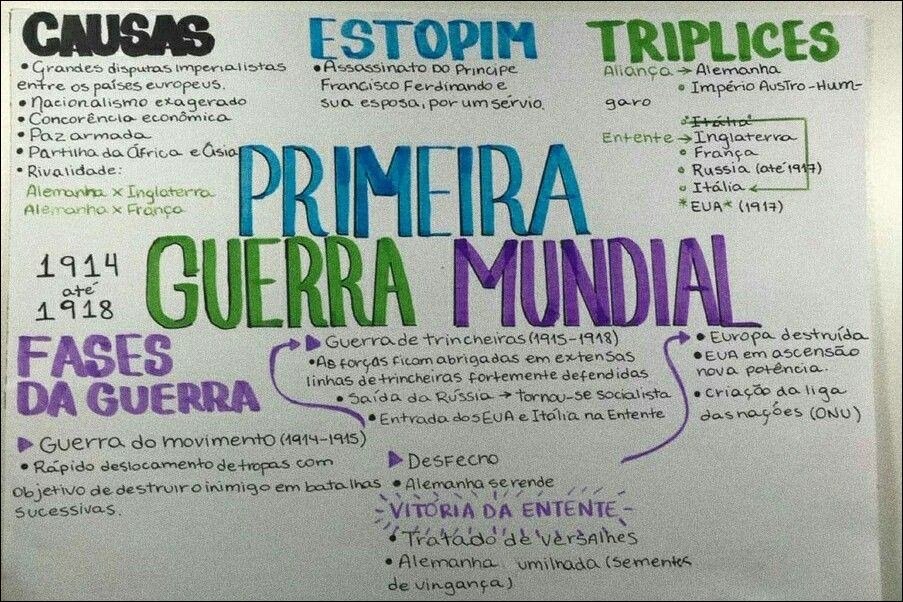 CAUSAS
• Grandes disputas imperialistas
entre os países europeus.
• Nacionalismo exagerado
• Concorência econômica
• Paz armada
• Partilha da África e Ásia
• Rivalidade:
Alemanha x Inglaterra
Alemanha x França
ESTOPIM
• Assassinato do Principe
Francisco Ferdinando e
sua esposa, por um sérvio.
TRIPLICES
Aliança → Alemanha
• Império Austro-Hum-
garo
• Itália
Entente → Inglaterra
• França
• Russia (até 1917)
• Itália
*EUA* (1917)
PRIMEIRA
GUERRA MUNDIAL
1914
até
1918
FASES
DA GUERRA
▶ Guerra do movimento (1914-1915)
• Rápido deslocamento de tropas com
objetivo de destruir o inimigo em batalhas
sucessivas.
▶ Guerra de trincheiras (1915-1918)
• As forças ficam abrigadas em extensas
linhas de trincheiras fortemente defendidas
• Saída da Rússia → tornou-se socialista
• Entrada dos EUA e Itália na Entente
▶ Desfecho
• Alemanha se rende
- VITÓRIA DA ENTENTE -
• Tratado de Versalhes
• Alemanha umilhada (sementes
de vingança)
• Europa destruída
• EUA em ascensão
nova potência.
• Criação da liga
das nações (ONU)